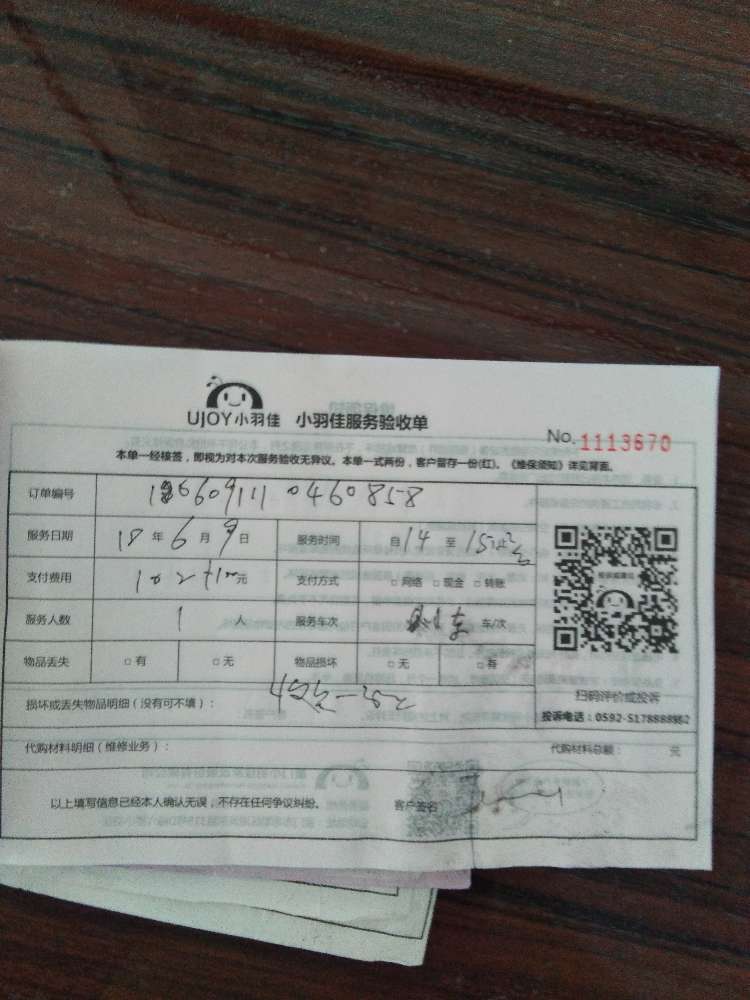 UJOY小羽佳 小羽佳服务验收单
No. 1113670
本单一经核签，即视为对本次服务验收无异议。本单一式两份，客户留存一份(红)。《维保须知》详见背面。
订单编号
服务日期 18 年 6 月 9 日 服务时间 自 14 至
支付费用 元 支付方式 □ 网络 □ 现金 □ 转账
服务人数 1 人 服务车次 车/次
物品丢失 □ 有 □ 无 物品损坏 □ 无 □ 有
扫码评价或投诉
损坏或丢失物品明细（没有可不填）：
投诉电话：0592-5178888
代购材料明细（维修业务）： 代购材料总额： 元
以上填写信息已经本人确认无误，不存在任何争议纠纷。 客户签名